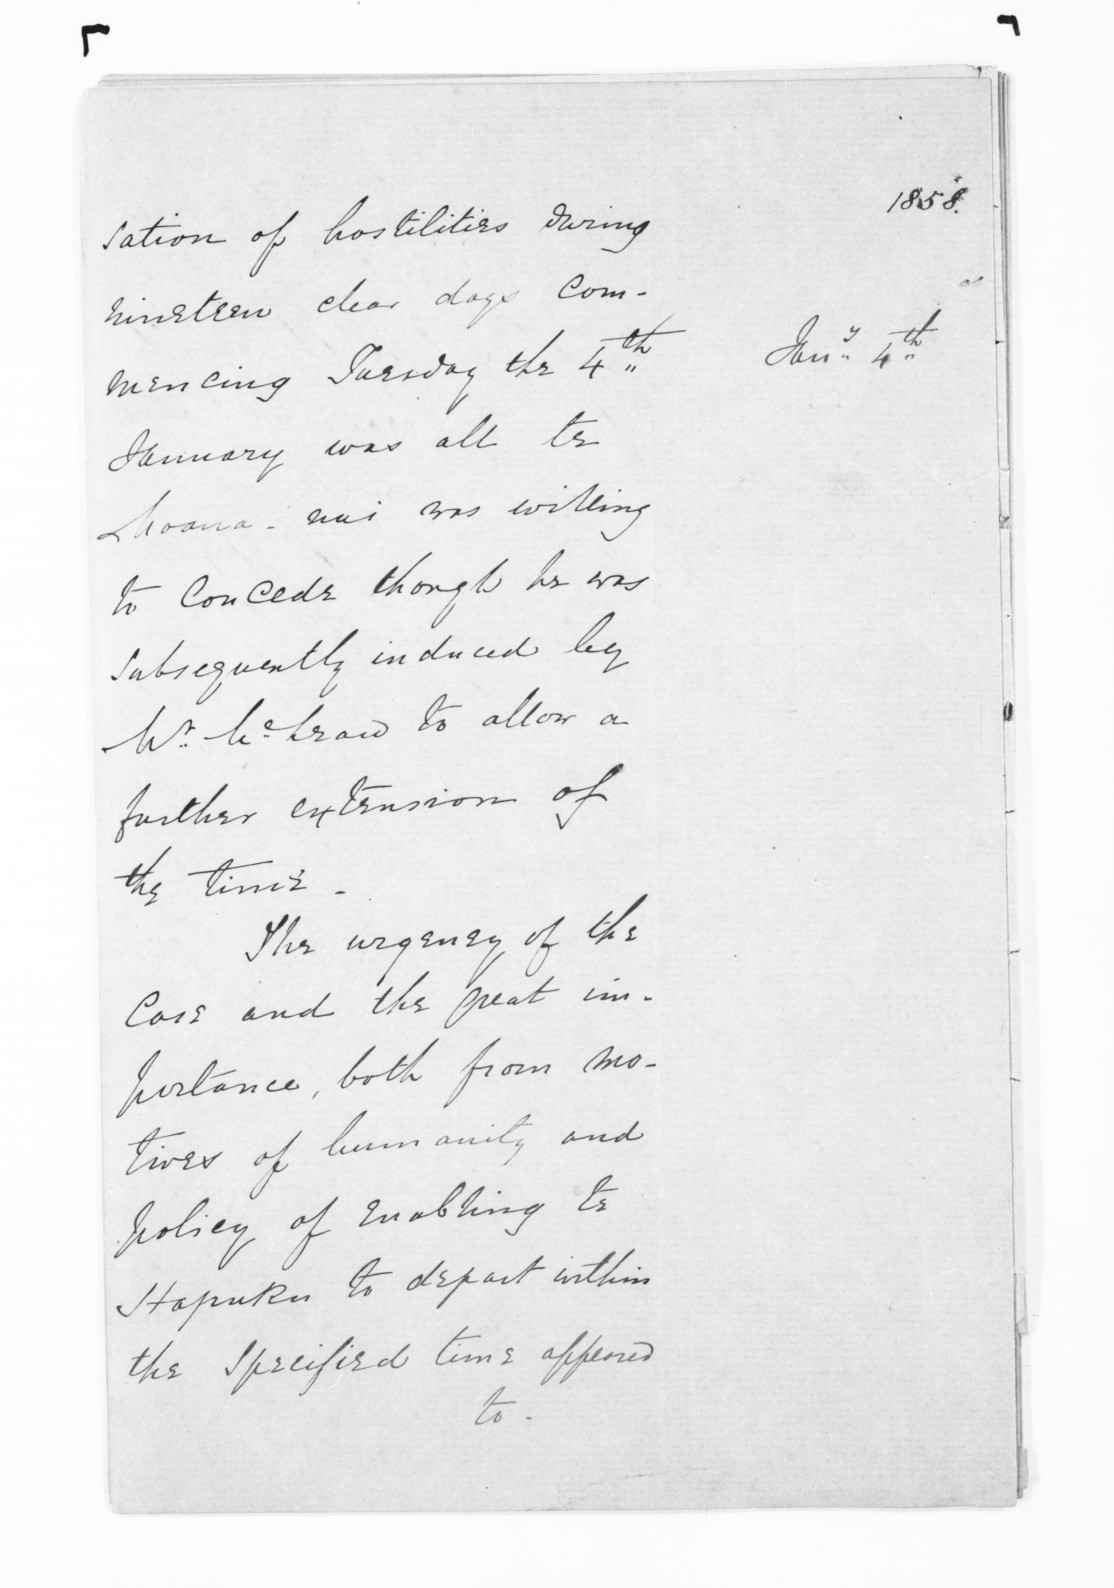 1858.
sation of hostilities during
nineteen clear days com-
mencing Tuesday the 4th
Jany 4th
January was all te
Moana-nui was willing
to concede though he was
subsequently induced by
Mr. McLean to allow a
further extension of
the time.
The urgency of the
case and the great im-
portance, both from mo-
tives of humanity and
policy of enabling te
Hapuku to depart within
the specified time appeared
to-